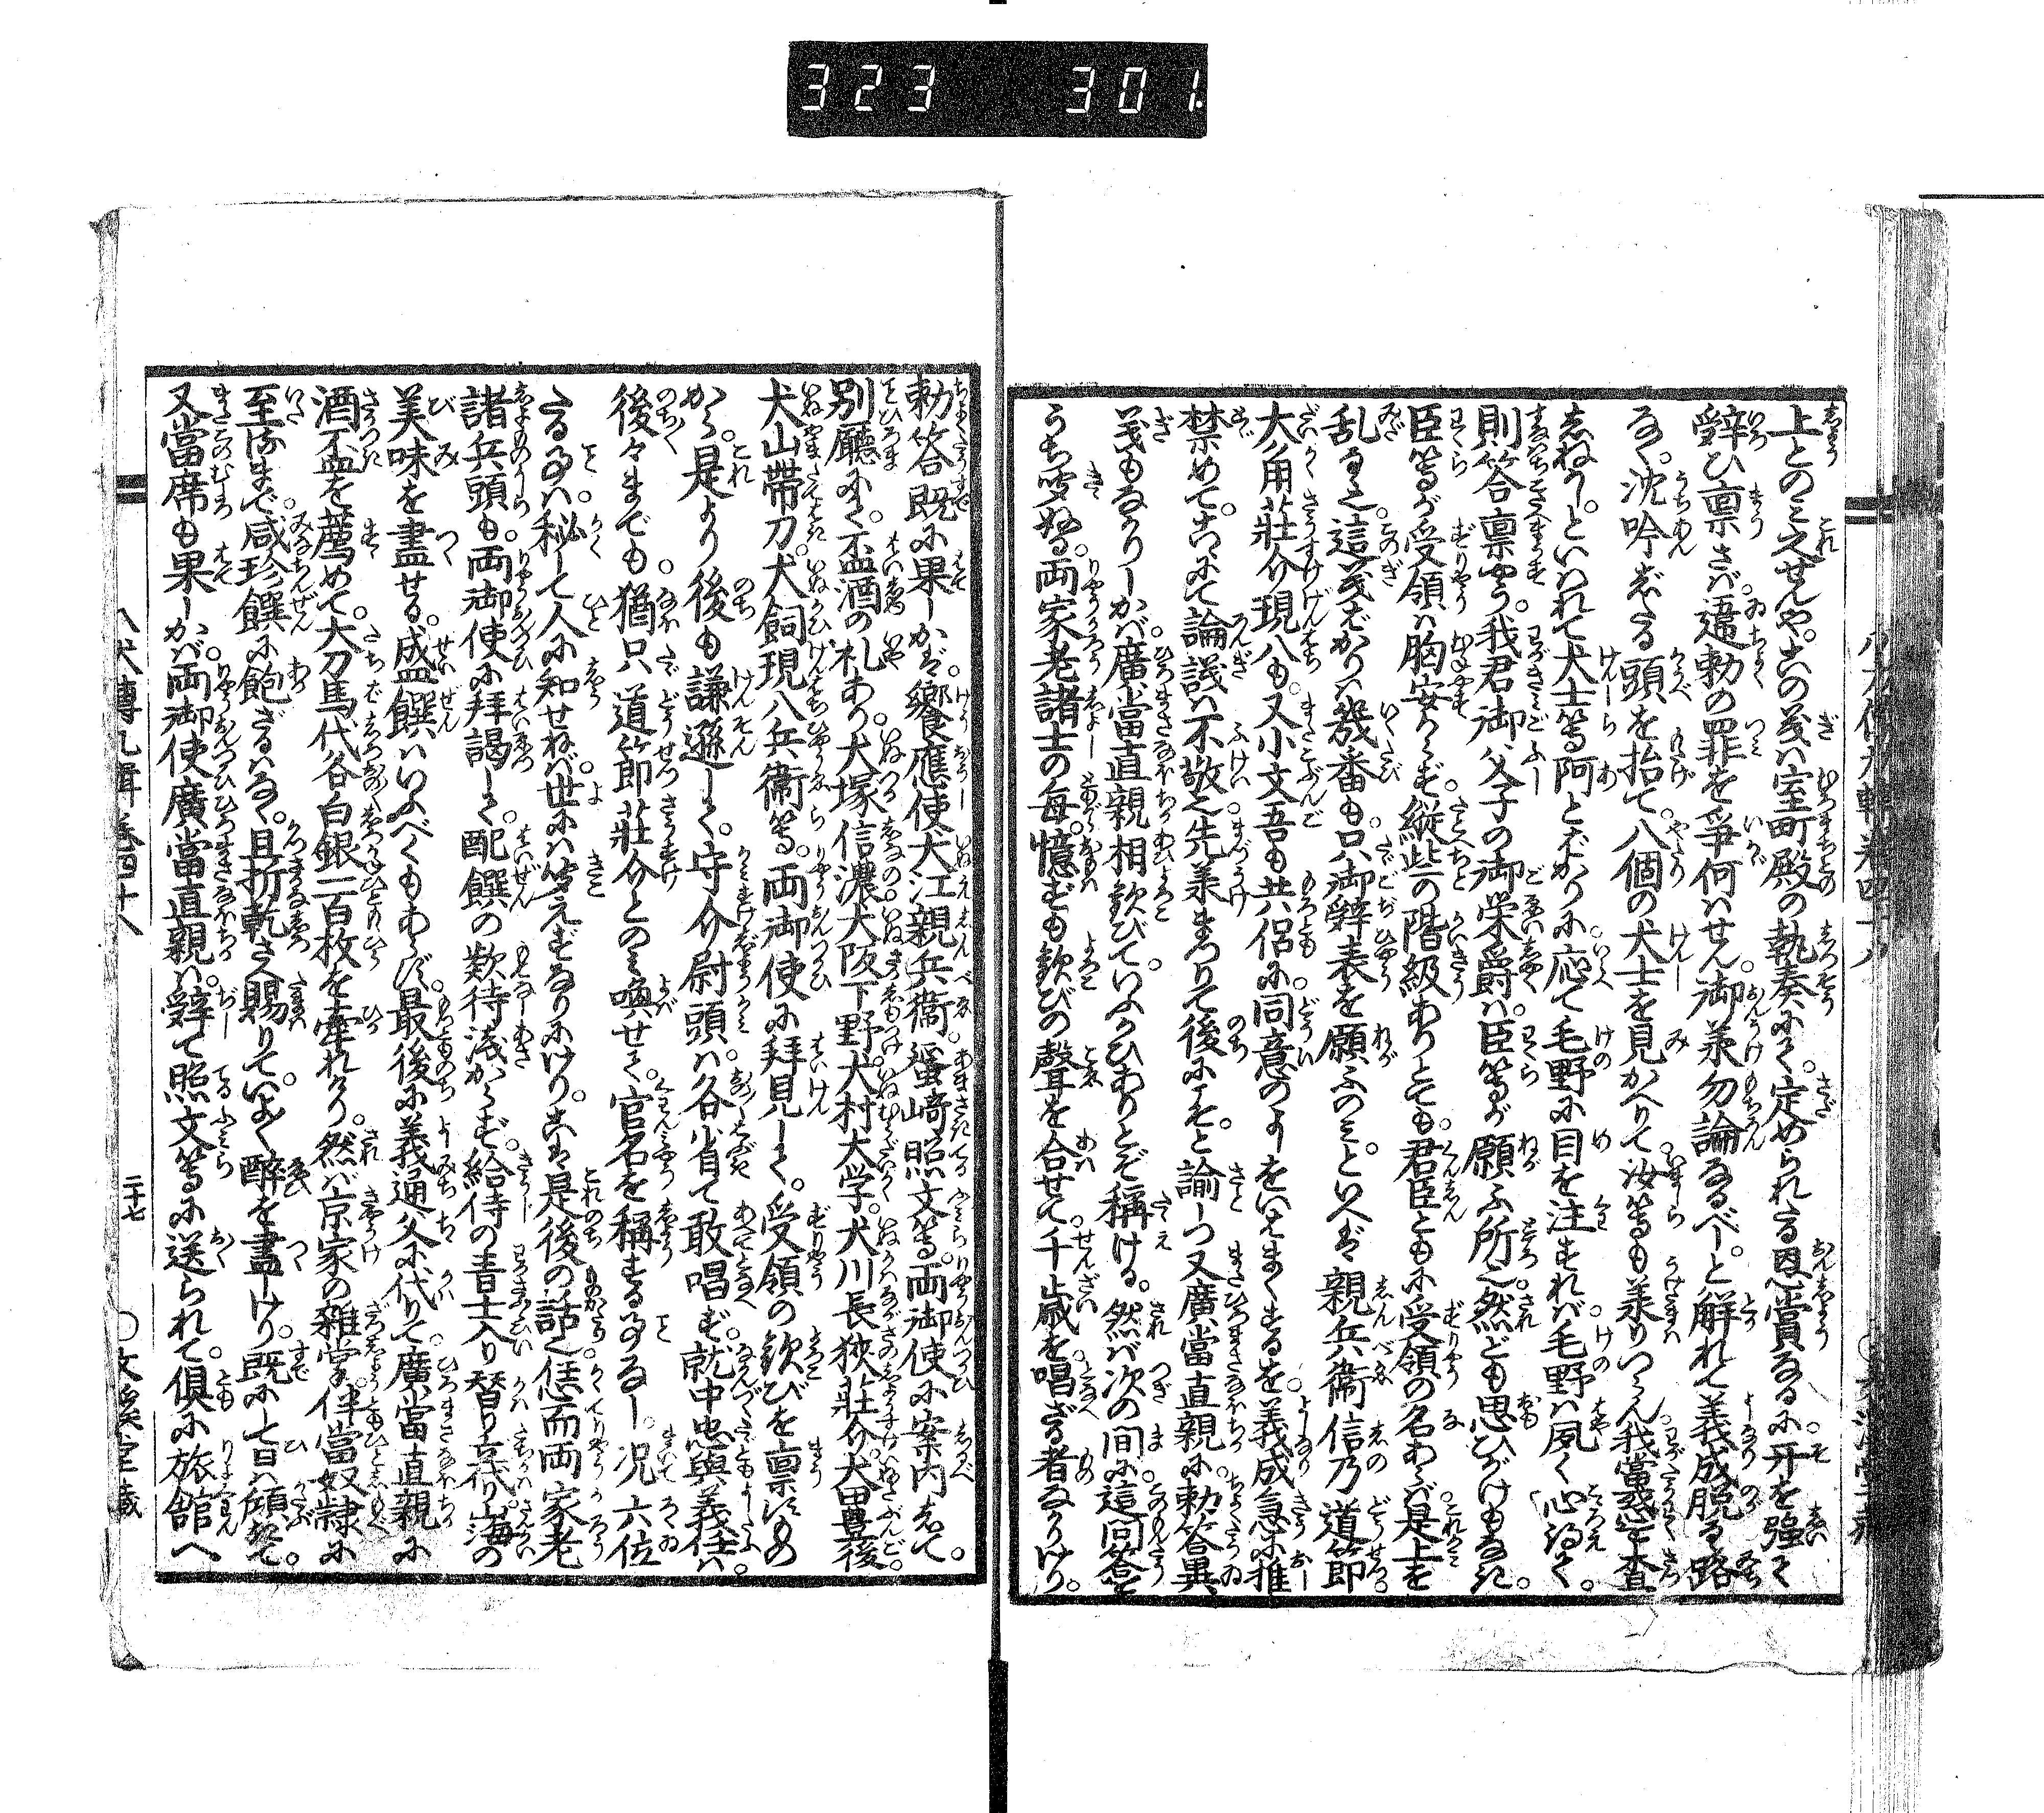 323 301
上とのミ之せんや。この義ハ室町殿の執奏にて。定められたる恩賞なるに。开を強て
辞ひ稟さバ。違勅の罪を争何ハせん。御羕勿論なるべし。と解れて義成脱るゝ路
なく。沈吟じたる頭を抬て。八個の犬士を見かへりて。汝等も羕りつらん。我當惑を査
しねかし。といはれて犬士等阿とばかりに。応て毛野に目を注すれバ。毛野ハ夙く心得て。
則答稟すやう。我君御父子の御栄爵ハ。臣等が願ふ所也。然ども思ひがけもなき。
臣等が受領ハ胸安からず。縦些の階級ありとても。君臣ともに受領の名あらバ。是上を
乱る也。這義ばかりハ幾番も。只御辞表を願ふのミ。といへば親兵衞信乃道節
大角莊介現八も。又小文吾も共侶に。同意のよしをいはまくするを。義成急に推
禁めて。こゝにて論議ハ不敬也。先羕まつりて後にこそ。と諭しつ又廣當直親に。勅答異
義もなかりしかバ。廣當直親相歓びて。いふかひありとぞ稱ける。然バ次の間に這問答を
うち聞ぬる。両家老諸士の毎。憶ずも歓びの聲を合せて。千歳を唱ざる者なかりけり。
勅答既に果しかば。饗應使犬江親兵衞。蜑崎照文等。両御使に案内して。
別廳にて。盃酒の礼あり。犬塚信濃。犬阪下野。犬村大学。犬川長狹莊介。犬田豊後。
犬山帶刀。犬飼現八兵衞等。両御使に拜見して。受領の歓びを稟すものから。
是より後も謙遜して。守介尉頭ハ。各省て敢唱ず。就中忠與義任ハ。
後々までも。猶只道節莊介とのミ喚せて。官名を稱する事なし。况六位
たる事ハ。秘して人に知せねバ。世にハ聞えずなりにけり。こは是後の話也。恁而両家老
諸兵頭も。両御使に拜謁して。配饌の欵待淺からず。給侍の青士入り替り立代り。山海の
美味を盡せる。盛饌ハいふべくもあらず。最後に義通父に代りて。廣當直親に
酒盃を薦めて。大刀馬代各白銀一百枚を牽れけり。然バ京家の雑掌。伴當奴隷に
至るまで。咸珎饌に飽ざるハなく。且折乾さへ賜りて。いよゝ醉を盡しけり。既に七日ハ傾きて。
又當席も果しかバ。両御使廣當直親ハ。辞て照文等に送られて。倶に旅舘へ
八犬傳九輯巻四十八
二十七
〇文溪堂藏